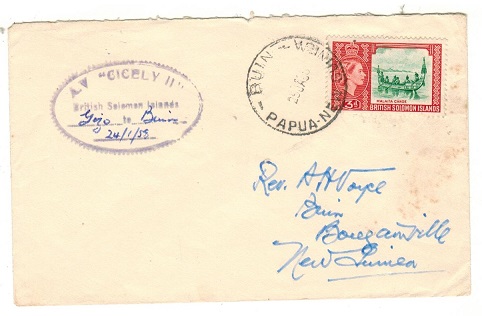 A.V "CICELY II"
British Solomon Islands
Gizo to Buin
24/1/59
BUIN
PAPUA-NEW GUINEA
3d
MALAITA CANOE
BRITISH SOLOMON ISLANDS
Rev. A H Voyce
Buin
Bougainville
New Guinea